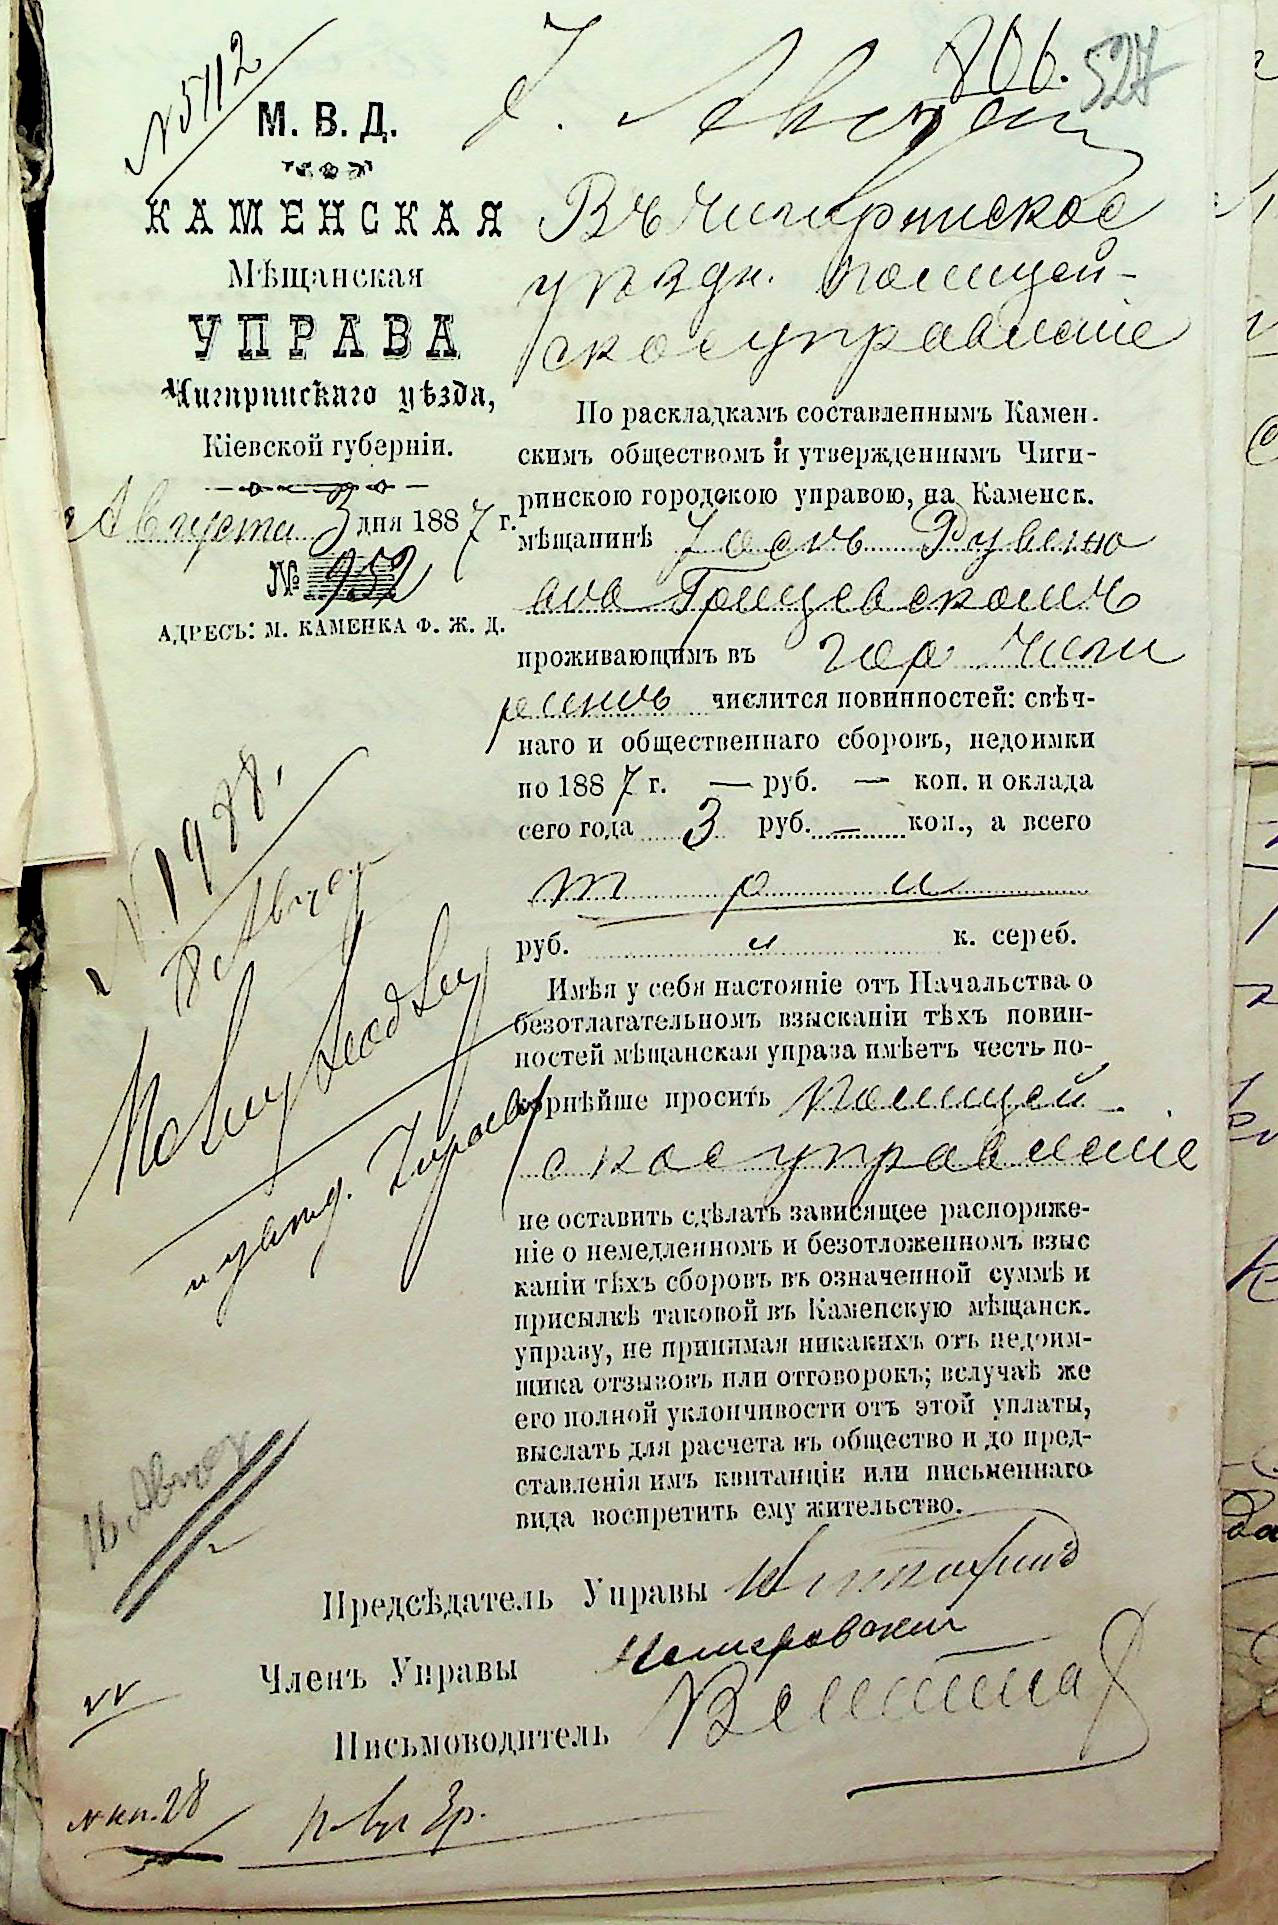 № 5112
806.
527
М. В. Д.
КАМЕНСКАЯ
Мѣщанская
УПРАВА
Чигиринскаго уѣзда,
Кіевской губерніи.
Августа 3 дня 1887 г.
№ 952
АДРЕСЪ: М. КАМЕНКА Ф. Ж. Д.
Въ Чигиринское
уѣздн. полицей-
ское управленіе
По раскладкамъ составленнымъ Камен-
скимъ обществомъ и утвержденнымъ Чиги-
ринскою городскою управою, на Каменск.
мѣщанинѣ Рувено
проживающимъ въ гор Чиги
ринѣ числится повинностей: свѣч-
наго и общественнаго сборовъ, недоимки
по 1887 г. — руб. — коп. и оклада
сего года 3 руб. — коп., а всего
три
руб. и к. сереб.
Имѣя у себя настояніе отъ Начальства о
безотлагательномъ взысканіи тѣхъ повин-
ностей мѣщанская управа имѣетъ честь по-
корнѣйше просить полицей-
ское управленіе
не оставить сдѣлать зависящее распоряже-
ніе о немедленномъ и безотложенномъ взыс
каніи тѣхъ сборовъ въ означенной суммѣ и
присылкѣ таковой въ Каменскую мѣщанск.
управу, не принимая никакихъ отъ недоим-
щика отзывовъ или отговорокъ; вслучаѣ же
его полной уклончивости отъ этой уплаты,
выслать для расчета въ общество и до пред-
ставленія имъ квитанціи или письменнаго
вида воспретить ему жительство.
№ 1988.
8 Август
16 Август
Предсѣдатель Управы
Членъ Управы
Письмоводитель